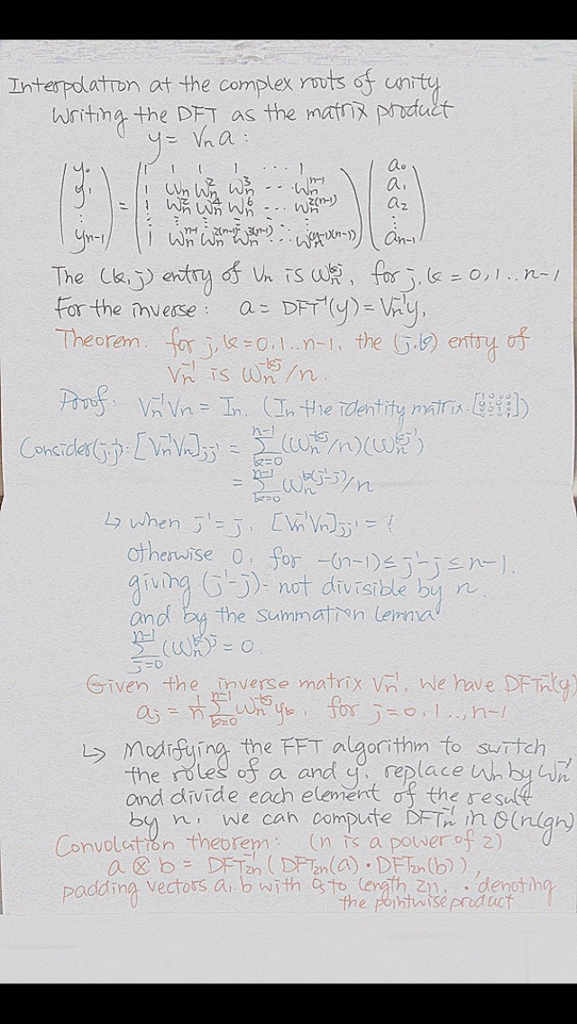 Interpolation at the complex roots of unity
Writing the DFT as the matrix product
y = Vₙ a :
(y₀ y₁ ⋮ yₙ₋₁) = (1 1 1 1 ⋯ 1
1 ωₙ ωₙ² ωₙ³ ⋯ ωₙⁿ⁻¹
1 ωₙ² ωₙ⁴ ωₙ⁶ ⋯ ωₙ²⁽ⁿ⁻¹⁾
⋮ ⋮ ⋮ ⋮ ⋮
1 ωₙⁿ⁻¹ ωₙ²⁽ⁿ⁻¹⁾ ωₙ³⁽ⁿ⁻¹⁾ ⋯ ωₙ⁽ⁿ⁻¹⁾⁽ⁿ⁻¹⁾) (a₀ a₁ a₂ ⋮ aₙ₋₁)
The (k,j) entry of Vₙ is ωₙ^kj, for j,k = 0,1..n-1
For the inverse: a = DFT⁻¹(y) = Vₙ⁻¹y,
Theorem. for j,k=0,1..n-1, the (j,k) entry of
Vₙ⁻¹ is ωₙ^-kj/n.
Proof: Vₙ⁻¹Vₙ = Iₙ. (Iₙ the identity matrix.)
Consider(j,j'): [Vₙ⁻¹Vₙ]jj' = Σ_{k=0}^{n-1} (ωₙ^-kj/n)(ωₙ^kj')
= Σ_{k=0}^{n-1} ωₙ^k(j'-j)/n
↳ when j'=j, [Vₙ⁻¹Vₙ]jj' = 1
otherwise 0, for -(n-1) ≤ j'-j ≤ n-1.
giving (j'-j): not divisible by n.
and by the summation lemma
Σ_{j=0}^{n-1} (ωₙ^k)^j = 0.
Given the inverse matrix Vₙ⁻¹, we have DFTₙ⁻¹(y)
aⱼ = 1/n Σ_{k=0}^{n-1} ωₙ^-kj yₖ, for j=0,1..,n-1
↳ Modifying the FFT algorithm to switch
the roles of a and y, replace ωₙ by ωₙ⁻¹
and divide each element of the result
by n, we can compute DFTₙ⁻¹ in Θ(n lgn)
Convolution theorem: (n is a power of 2)
a ⊗ b = DFT₂ₙ⁻¹(DFT₂ₙ(a) · DFT₂ₙ(b)),
padding vectors a,b with 0s to length 2n, · denoting
the pointwise product